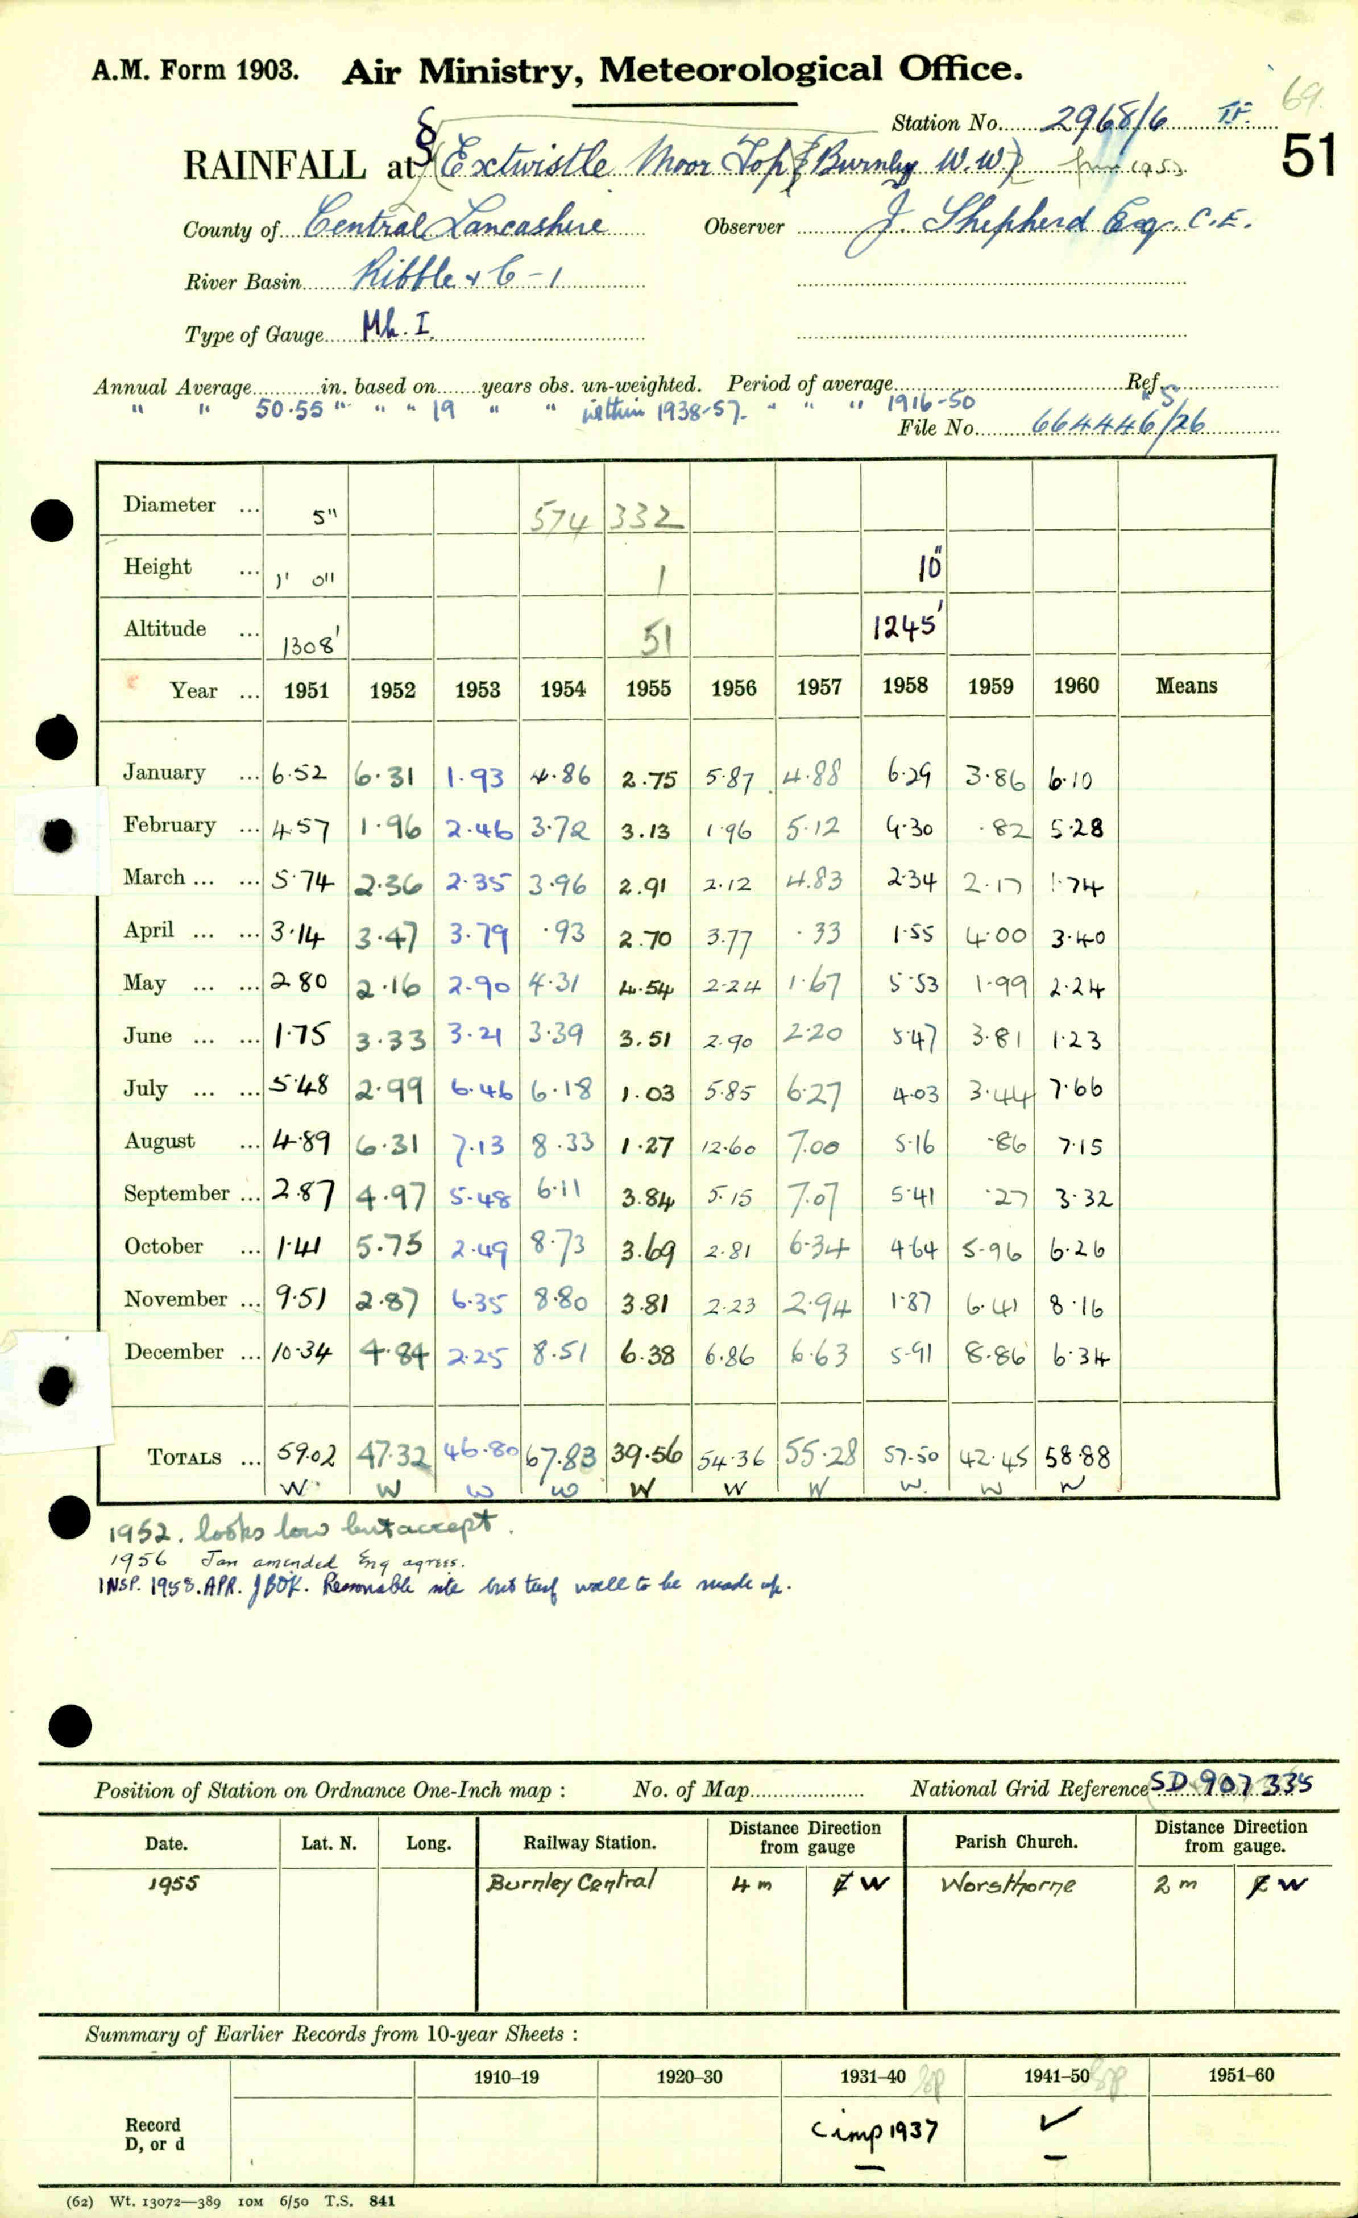 A.M. Form 1903. Air Ministry, Meteorological Office.
69.
Station No. 2968/6
51
RAINFALL at § (Extwistle Moor Top) (Burnley W.W) from 1953.
County of Central Lancashire Observer J. Shepherd Esq. C.E.
River Basin Ribble + 6-1
Type of Gauge Mk. I.
Annual Average in. based on years obs. un-weighted. Period of average Ref.
" " 50.55 " " " 19 " " within 1938-57. " " " 1916-50 " S
File No. 664446/26
Diameter ... 5" 574 332
Height ... 1' 0" 1 10"
Altitude ... 1308' 51 1245'
Year ... 1951 1952 1953 1954 1955 1956 1957 1958 1959 1960 Means
January ... 6.52 6.31 1.93 4.86 2.75 5.87 4.88 6.29 3.86 6.10
February ... 4.57 1.96 2.46 3.72 3.13 1.96 5.12 4.30 .82 5.28
March ... ... 5.74 2.36 2.35 3.96 2.91 2.12 4.83 2.34 2.17 1.74
April ... ... 3.14 3.47 3.79 .93 2.70 3.77 .33 1.55 4.00 3.40
May ... ... 2.80 2.16 2.90 4.31 4.54 2.24 1.67 5.53 1.99 2.24
June ... ... 1.75 3.33 3.21 3.39 3.51 2.90 2.20 5.47 3.81 1.23
July ... ... 5.48 2.99 6.46 6.18 1.03 5.85 6.27 4.03 3.44 7.66
August ... 4.89 6.31 7.13 8.33 1.27 12.60 7.00 5.16 .86 7.15
September ... 2.87 4.97 5.48 6.11 3.84 5.15 7.07 5.41 .27 3.32
October ... 1.41 5.75 2.49 8.73 3.69 2.81 6.34 4.64 5.96 6.26
November ... 9.51 2.87 6.35 8.80 3.81 2.23 2.94 1.87 6.41 8.16
December ... 10.34 4.84 2.25 8.51 6.38 6.86 6.63 5.91 8.86 6.34
TOTALS ... 59.02 47.32 46.80 67.83 39.56 54.36 55.28 57.50 42.45 58.88
W W W W W W W W W W
1952. looks low but accept.
1956 Jan amended Eng agrees.
INSP. 1958. APR. JBDK. Reasonable site but turf wall to be made up.
Position of Station on Ordnance One-Inch map : No. of Map National Grid Reference SD 907 335
Date. Lat. N. Long. Railway Station. Distance Direction from gauge Parish Church. Distance Direction from gauge.
1955 Burnley Central 4 m W Worsthorne 2 m W
Summary of Earlier Records from 10-year Sheets :
1910–19 1920–30 1931–40 1941–50 1951–60
Record D, or d C imp 1937 ✓
(62) Wt. 13072—389 10M 6/50 T.S. 841